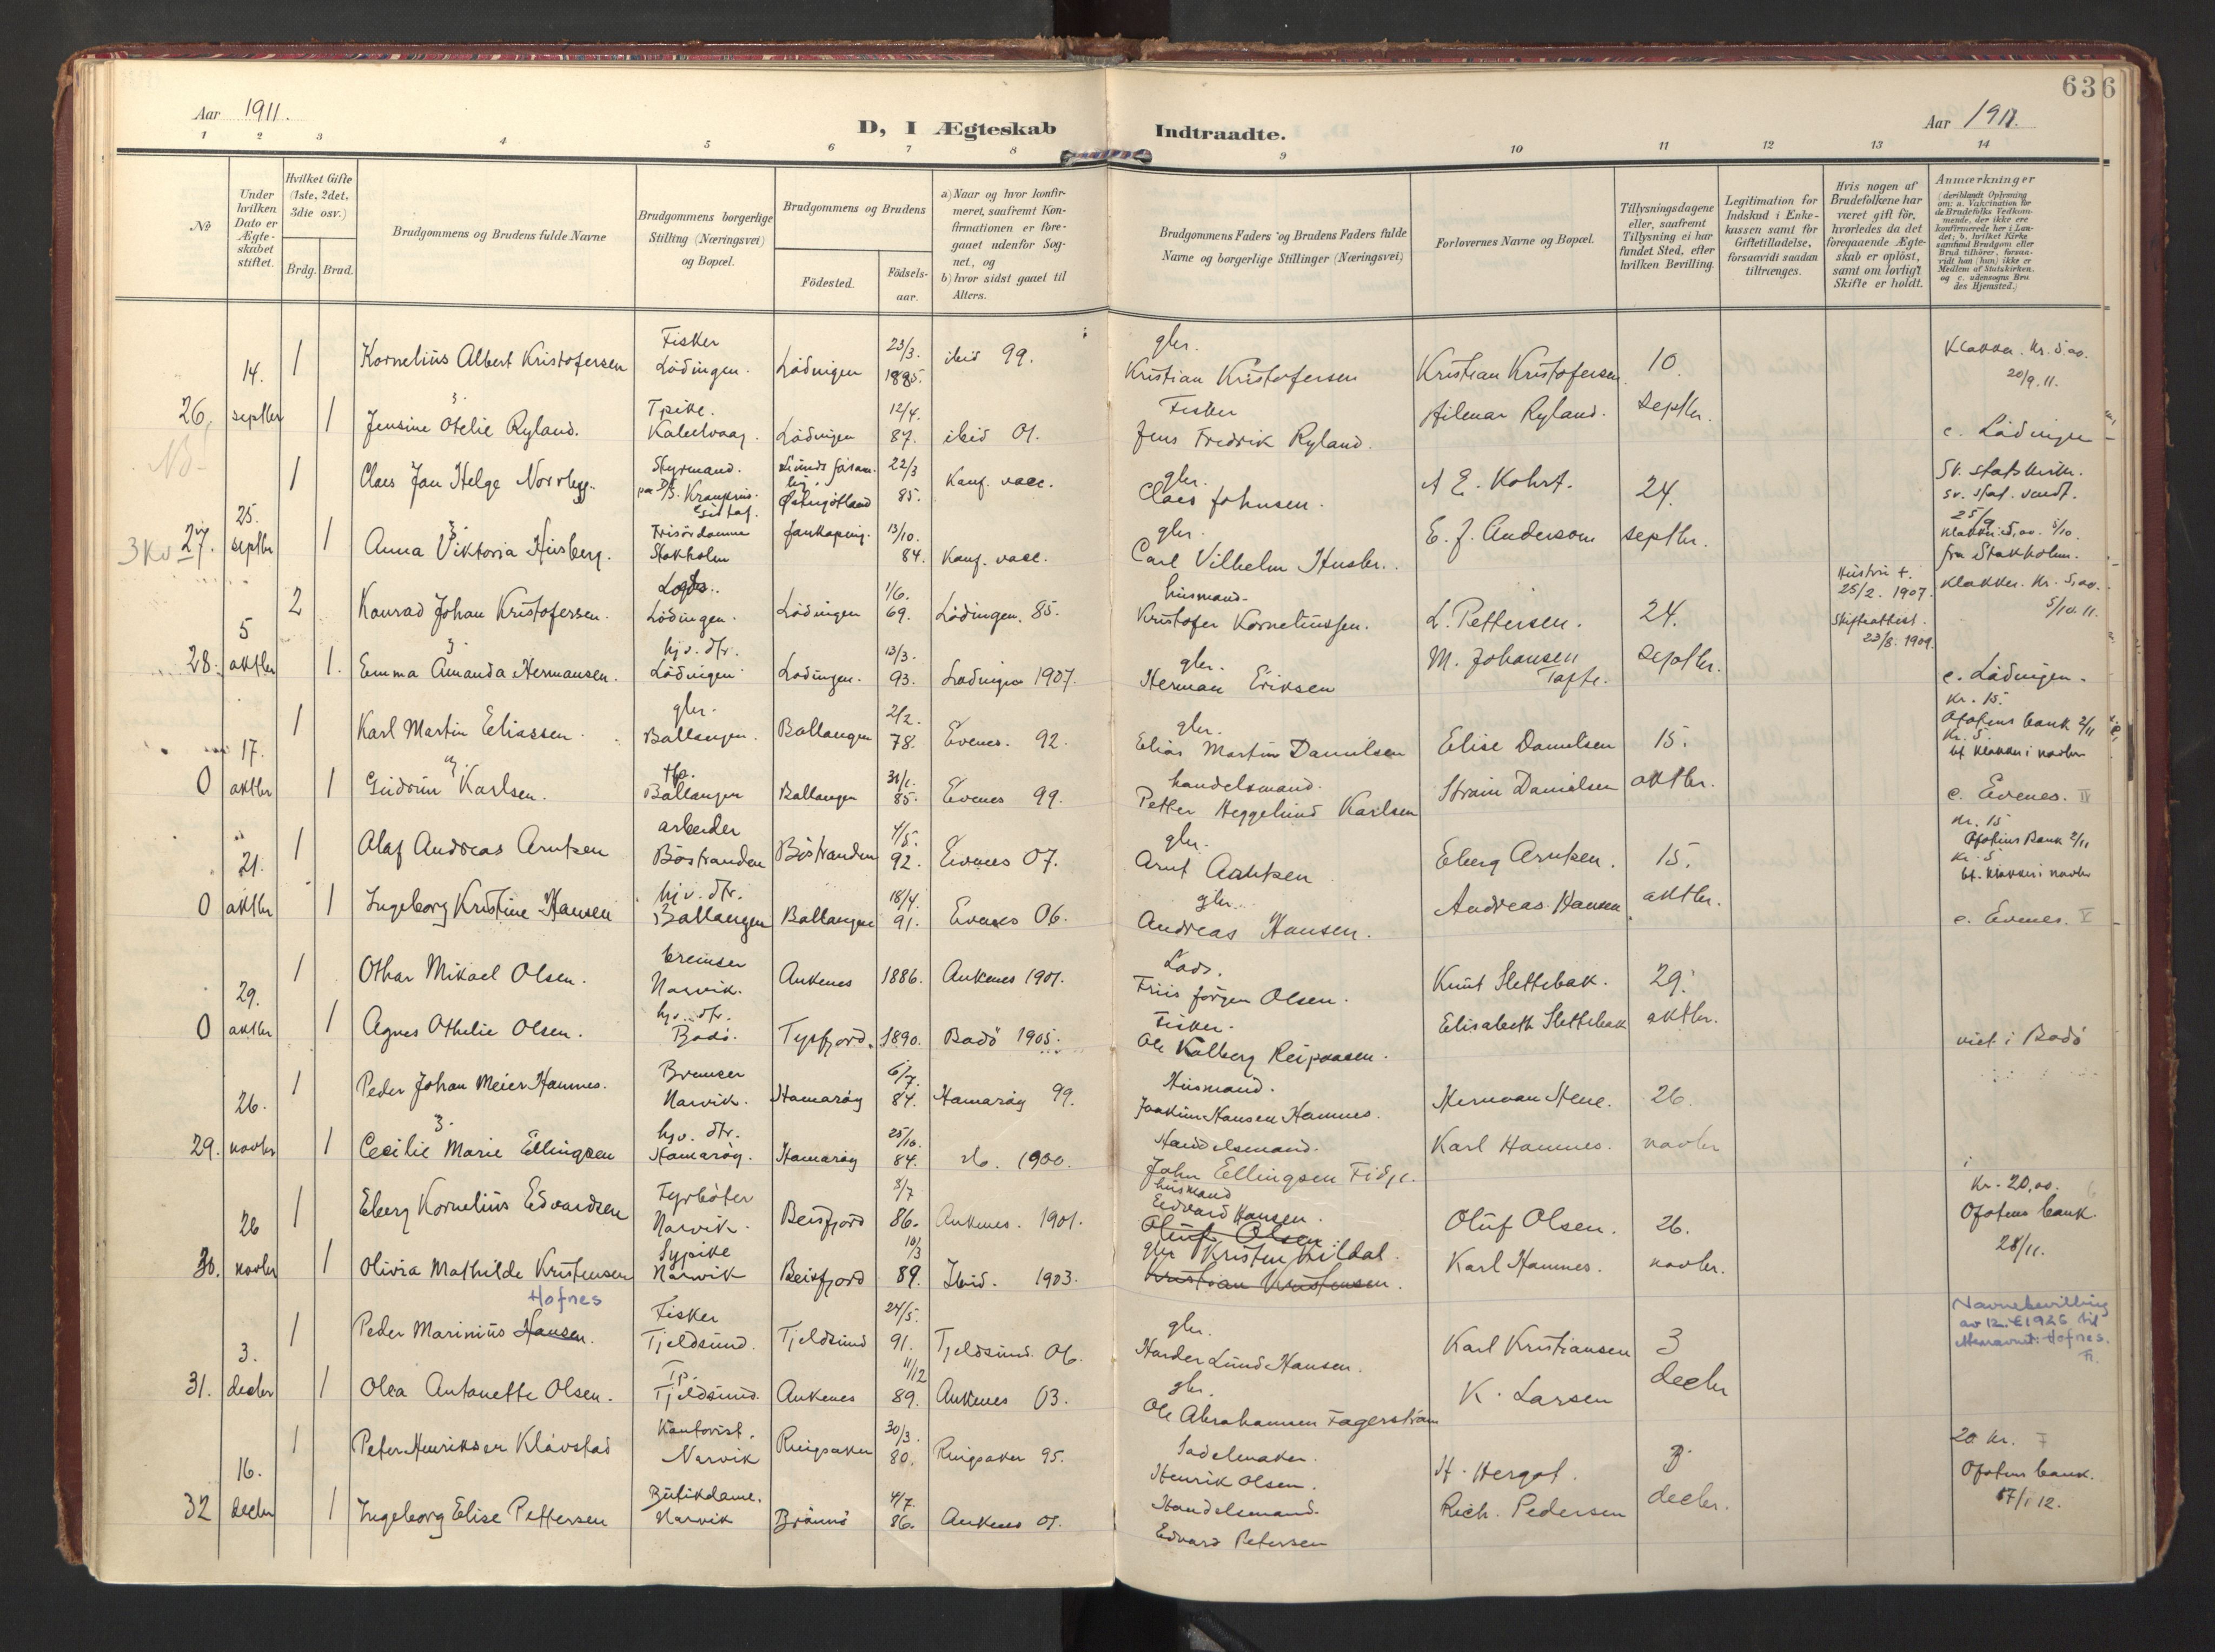 636
Aar 1911.
D, I Ægteskab Indtraadte.
Aar 1911.
1 2 3 4 5 6 7 8 9 10 11 12 13 14
No
Under hvilken Dato er Ægte-skabet stiftet.
Hvilket Gifte (1ste, 2det, 3die osv.)
Brdg. Brud.
Brudgommens og Brudens fulde Navne
Brudgommens borgerlige Stilling (Næringsvei) og Bopæl.
Brudgommens og Brudens
Födested.
Födsels-aar.
a) Naar og hvor konfir-meret, saafremt Kon-firmationen er fore-gaaet udenfor Sog-net, og
b) hvor sidst gaaet til Alters.
Brudgommens Faders og Brudens Faders fulde Navne og borgerlige Stillinger (Næringsvei)
Forlovernes Navne og Bopæl.
Tillysningsdagene eller, saafremt Tillysning ei har fundet Sted, efter hvilken Bevilling.
Legitimation for Indskud i Enke-kassen samt for Giftetilladelse, forsaavidt saadan tiltrænges.
Hvis nogen af Brudefolkene har været gift för, hvorledes da det foregaaende Ægte-skab er oplöst, samt om lovligt Skifte er holdt.
Anmærkninger
(deriblandt Oplysning om: a. Vakcination for de Brudefolks Vedkom-mende, der ikke ere konfirmerede her i Lan-det; b. hvilket Kirke-samfund Brudgom eller Brud tilhörer, forsaa-vidt han (hun) ikke er Medlem af Statskirken, og c. udensogns Bru-des Hjemsted.)
26. 14. septbr 1 Kornelius Albert Kristofersen Fisker Lödingen. Lödingen 23/3. 1885. ibid 99. gbr. Kristian Kristofersen Kristian Kristofersen 10. septbr. Klokker. Kr. 5,00. 20/9.11.
1 Jensine Otelie Ryland. Tpike. Lödingen 12/4. 87. ibid 01. Fisker Jens Fredrik Ryland. Hilmar Ryland. c. Lödingen
NB
27. 25. septbr 1 Claes Jan Helge Norrbyg. Styrmand. Östergötland 22/3 85. Konf. vacc. gbr. Claes Johnsen. A E. Kohrt. 24. septbr. Sv. statskirke. 25/9
1 Anna Viktoria Husberg. Frisördame Stokholm Jonkoping. 13/10. 84. Konf. vacc. gbr. Carl Vilhelm Husbr. E. J. Anderson Klokker. 5,00. 5/10. fra Stokholm.
28. 5 oktbr 2 Konrad Johan Kristofersen. Lods. Lödingen. Lödingen 1/6. 69. Lödingen. 85. husmand. Kristofer Korneliussen. L. Pettersen. 24. septbr. Hustru †. 25/2. 1907. Skifteattest. 23/8. 1909. Klokker. Kr. 5,00. 5/10.11.
1. Emma Amanda Hermansen. hjv. dtr. Lödingen Lödingen. 13/3. 93. Lödingen 1907. gbr. Herman Eriksen M. Johansen c. Lödingen.
0 17. oktbr 1 Karl Martin Eliassen. gbr. Ballangen. Ballangen 2/2. 78. Evenes. 92. gbr. Elias Martin Danielsen Elise Danielsen 15. oktbr. Kr. 15. Ofotens bank 2/11 Kr. 5. bt. klokker i novbr
1 Gudrun Karlsen. Ballangen Ballangen 31/1. 85. Evenes 99. handelsmand. Petter Heggelund Karlsen Danielsen c. Evenes. IV
0 21. oktbr 1 Olaf Andreas Arntsen arbeider Böstranden Böstranden 4/5. 92. Evenes 07. gbr. Arnt Eberg Arntsen. 15. oktbr. Kr. 15 Ofotens Bank 2/11 Kr. 5 bt. klokker i novbr
1 Ingeborg Kristine Hansen hjv. dtr. Ballangen Ballangen 18/4. 91. Evenes 06. gbr. Andreas Hansen. Andreas Hansen c. Evenes. V
0 29. oktbr 1 Othar Mikael Olsen. bremser Narvik. Ankenes 1886. Ankenes 1901. Lods. Friis Jörgen Olsen. Knut Slettebak. 29. oktbr.
1 Agnes Othelie Olsen. hjv. dtr. Bodö. Tysfjord. 1890. Bodö 1905. Fisker. Ole Kolberg Elisabeth Slettebak viet i Bodö
29. 26. novbr 1 Peder Johan Meier Hamnes. Bremser Narvik. Hamaröy 6/7. 84. Hamaröy 99. Husmand. Joakim Hansen Hamnes. Herman 26. novbr
1 Cecilie Marie Ellingsen hjv. dtr. Hamaröy. Hamaröy 25/10. 84. do. 1900. Handelsmand. John Ellingsen Karl Hamnes.
30. 26 novbr 1 Eberg Kornelius Edvardsen Fyrböter Narvik. Beisfjord 3/7 86. Ankenes. 1901. husmand Edvard Hansen. Oluf Olsen Oluf Olsen. 26. novbr. Kr. 20,00. Ofotens bank. 28/11.
1 Olivia Mathilde Kristensen Sypike Narvik Beisfjord 10/3 89. Ibid. 1903. gbr Kristen Kildal. Kristian Kristensen. Karl Hamnes.
Hofnes
31. 3. decbr 1 Peder Marinius Hansen. Fisker Tjeldsund. Tjeldsund 24/5. 91. Tjeldsund. 06. gbr. Harder Lund Hansen. Karl Kristiansen 3 decbr Navnebevilling av 1926 til Hofnes.
1 Olea Antonette Olsen. Tp. Tjeldsund. Ankenes 11/12 89. Ankenes 03. gbr. Ole Abrahamsen Fagerstrøm K. Larsen
32 16. decbr 1 Peter Henriksen Klövstad Kontorist. Narvik Ringsaker 30/3. 80. Ringsaker 95. Sadelmaker. Henrik Olsen. H. Hergot. 3 decbr. 20 Kr. Ofotens bank. 17/1 12.
1 Ingeborg Elise Pettersen Butikdame. Narvik Brönnö 4/7. 86. Ankenes 01. Handelsmand. Edvard Petersen Rich. Pedersen